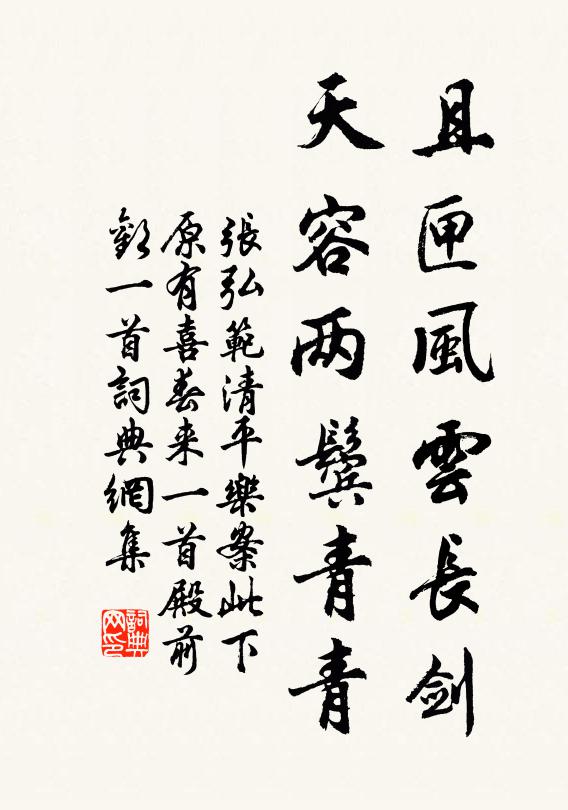 且匣風雲長剑
天容两鬓青青
張弘範清平樂案此下
原有喜春来一首殿前
歡一首詞典網集
詞典
网印